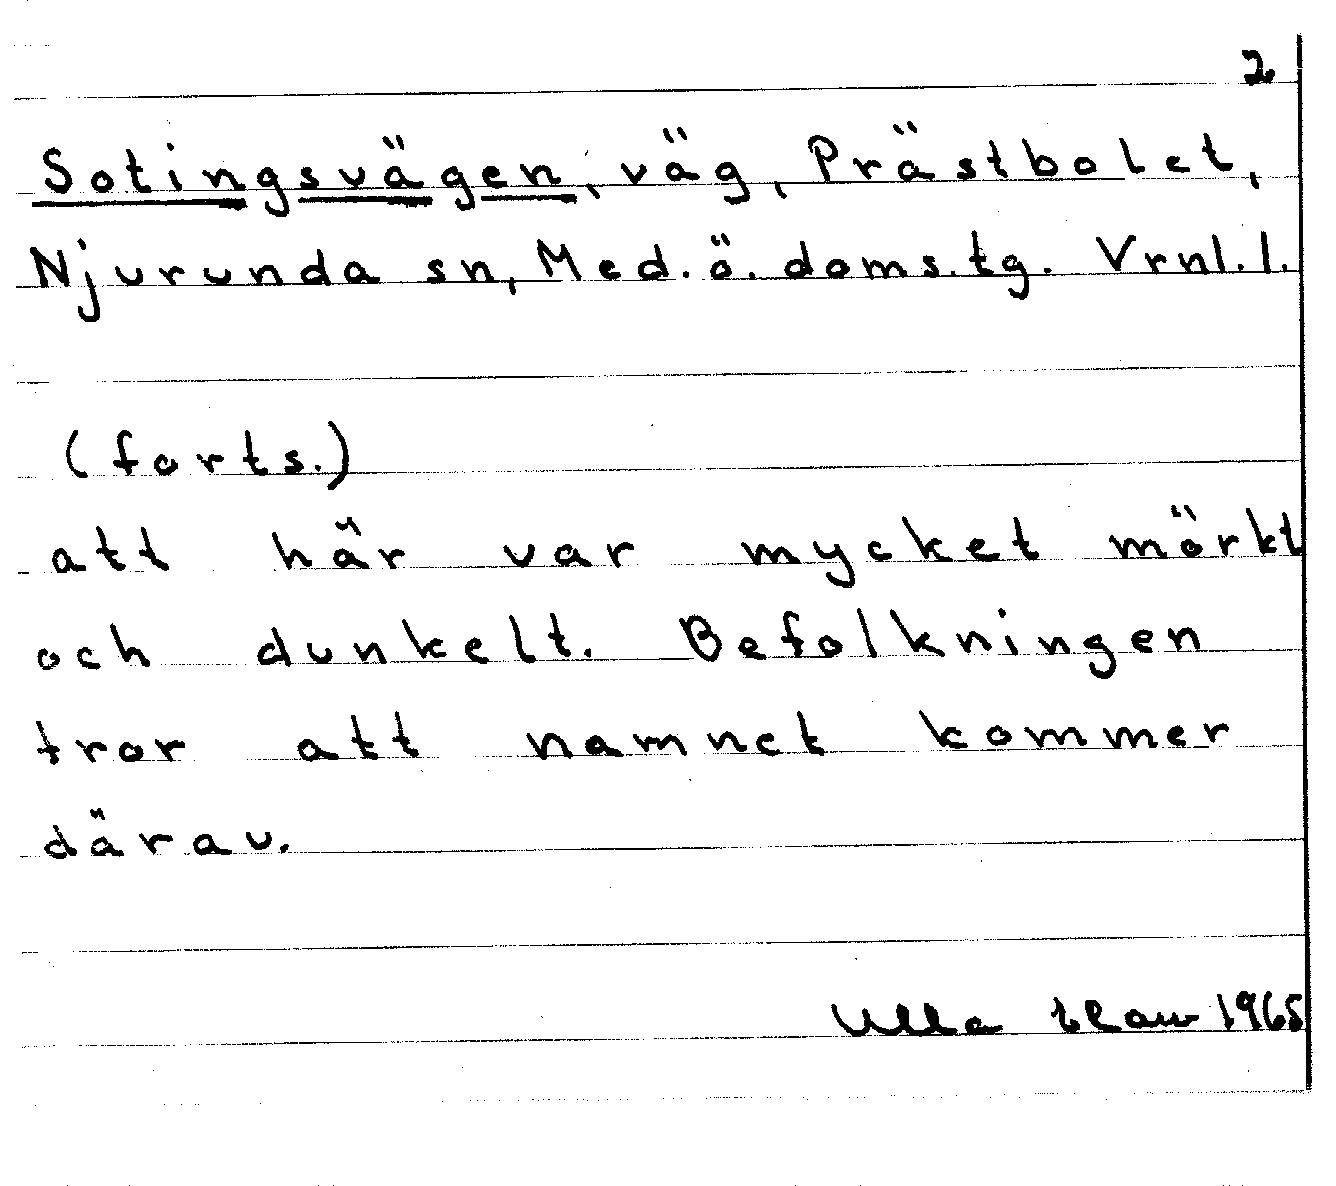 2
Sotingsvägen, väg, Prästbolet,
Njurunda sn, Med. ö. doms. tg. Vrnl. l.
(forts.)
att här var mycket mörkt
och dunkelt. Befolkningen
tror att namnet kommer
därav.
Ulla 1965